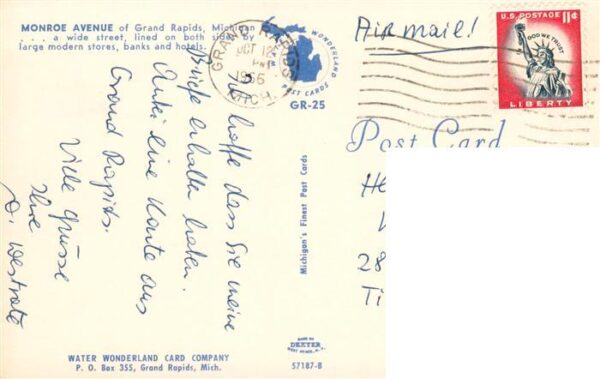 MONROE AVENUE of Grand Rapids, Michigan
. . . . a wide street, lined on both sides by
large modern stores, banks and hotels.
GRAND RAPIDS
OCT 12
PM
1966
MICH.
WONDERLAND
POST CARDS
GR-25
Air mail!
U.S. POSTAGE 11¢
IN GOD WE TRUST
LIBERTY
Post Card
hoffe dass Sie meine
Briefe erhalten haben.
eine Karte aus
Grand Rapids.
Viele Grüsse
Ihre
D. Westrate
28
Ti
Michigan's Finest Post Cards
MADE BY
DEXTER
WEST NYACK, N.Y.
57187-B
WATER WONDERLAND CARD COMPANY
P. O. Box 355, Grand Rapids, Mich.